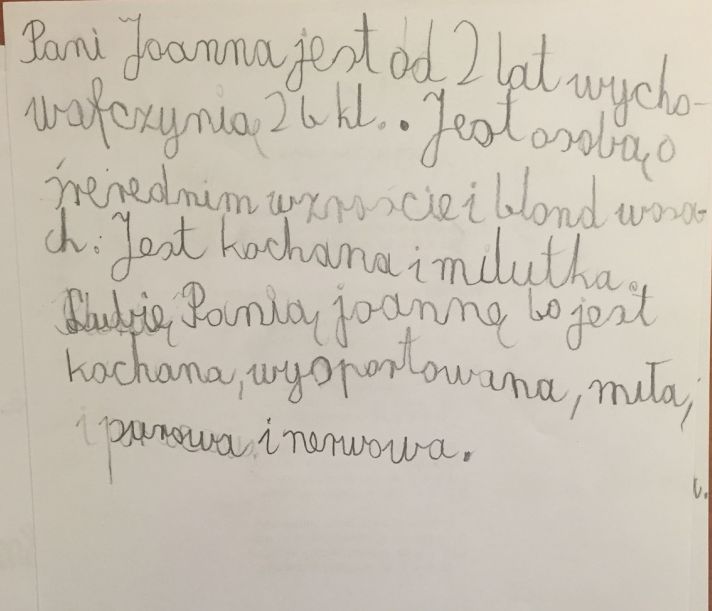 Pani Joanna jest od 2 lat wycho-
wafczynią 2 b kl.. Jest osobą o
śrerednim wzroście i blond wosa-
ch. Jest kochana i milutka.
Lubię Panią joannę bo jest
kochana, wysportowana, miła,
i surowa i nerwowa.